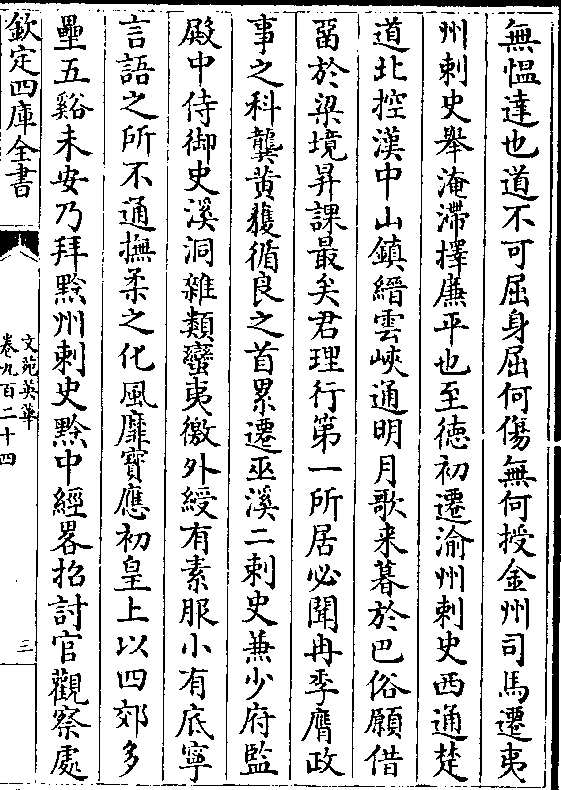 無愠達也道不可屈身屈何傷無何授金州司馬遷夷
州刺史舉淹滯擇廉平也至徳初遷渝州刺史西通楚
道北控漢中山鎮縉雲峽通明月歌来暮於巴俗願借
留於梁境昇課最矣君理行第一所居必聞冉季膺政
事之科龔黄獲循良之首累遷巫溪二刺史兼少府監
殿中侍御史溪洞雜類蠻夷徼外綬有素服小有底寧
言語之所不通撫柔之化風靡寳應初皇上以四郊多
壘五谿未安乃拜黔州刺史黔中經畧招討官觀察處
欽定四庫全書
文苑英華
卷九百二十四
三